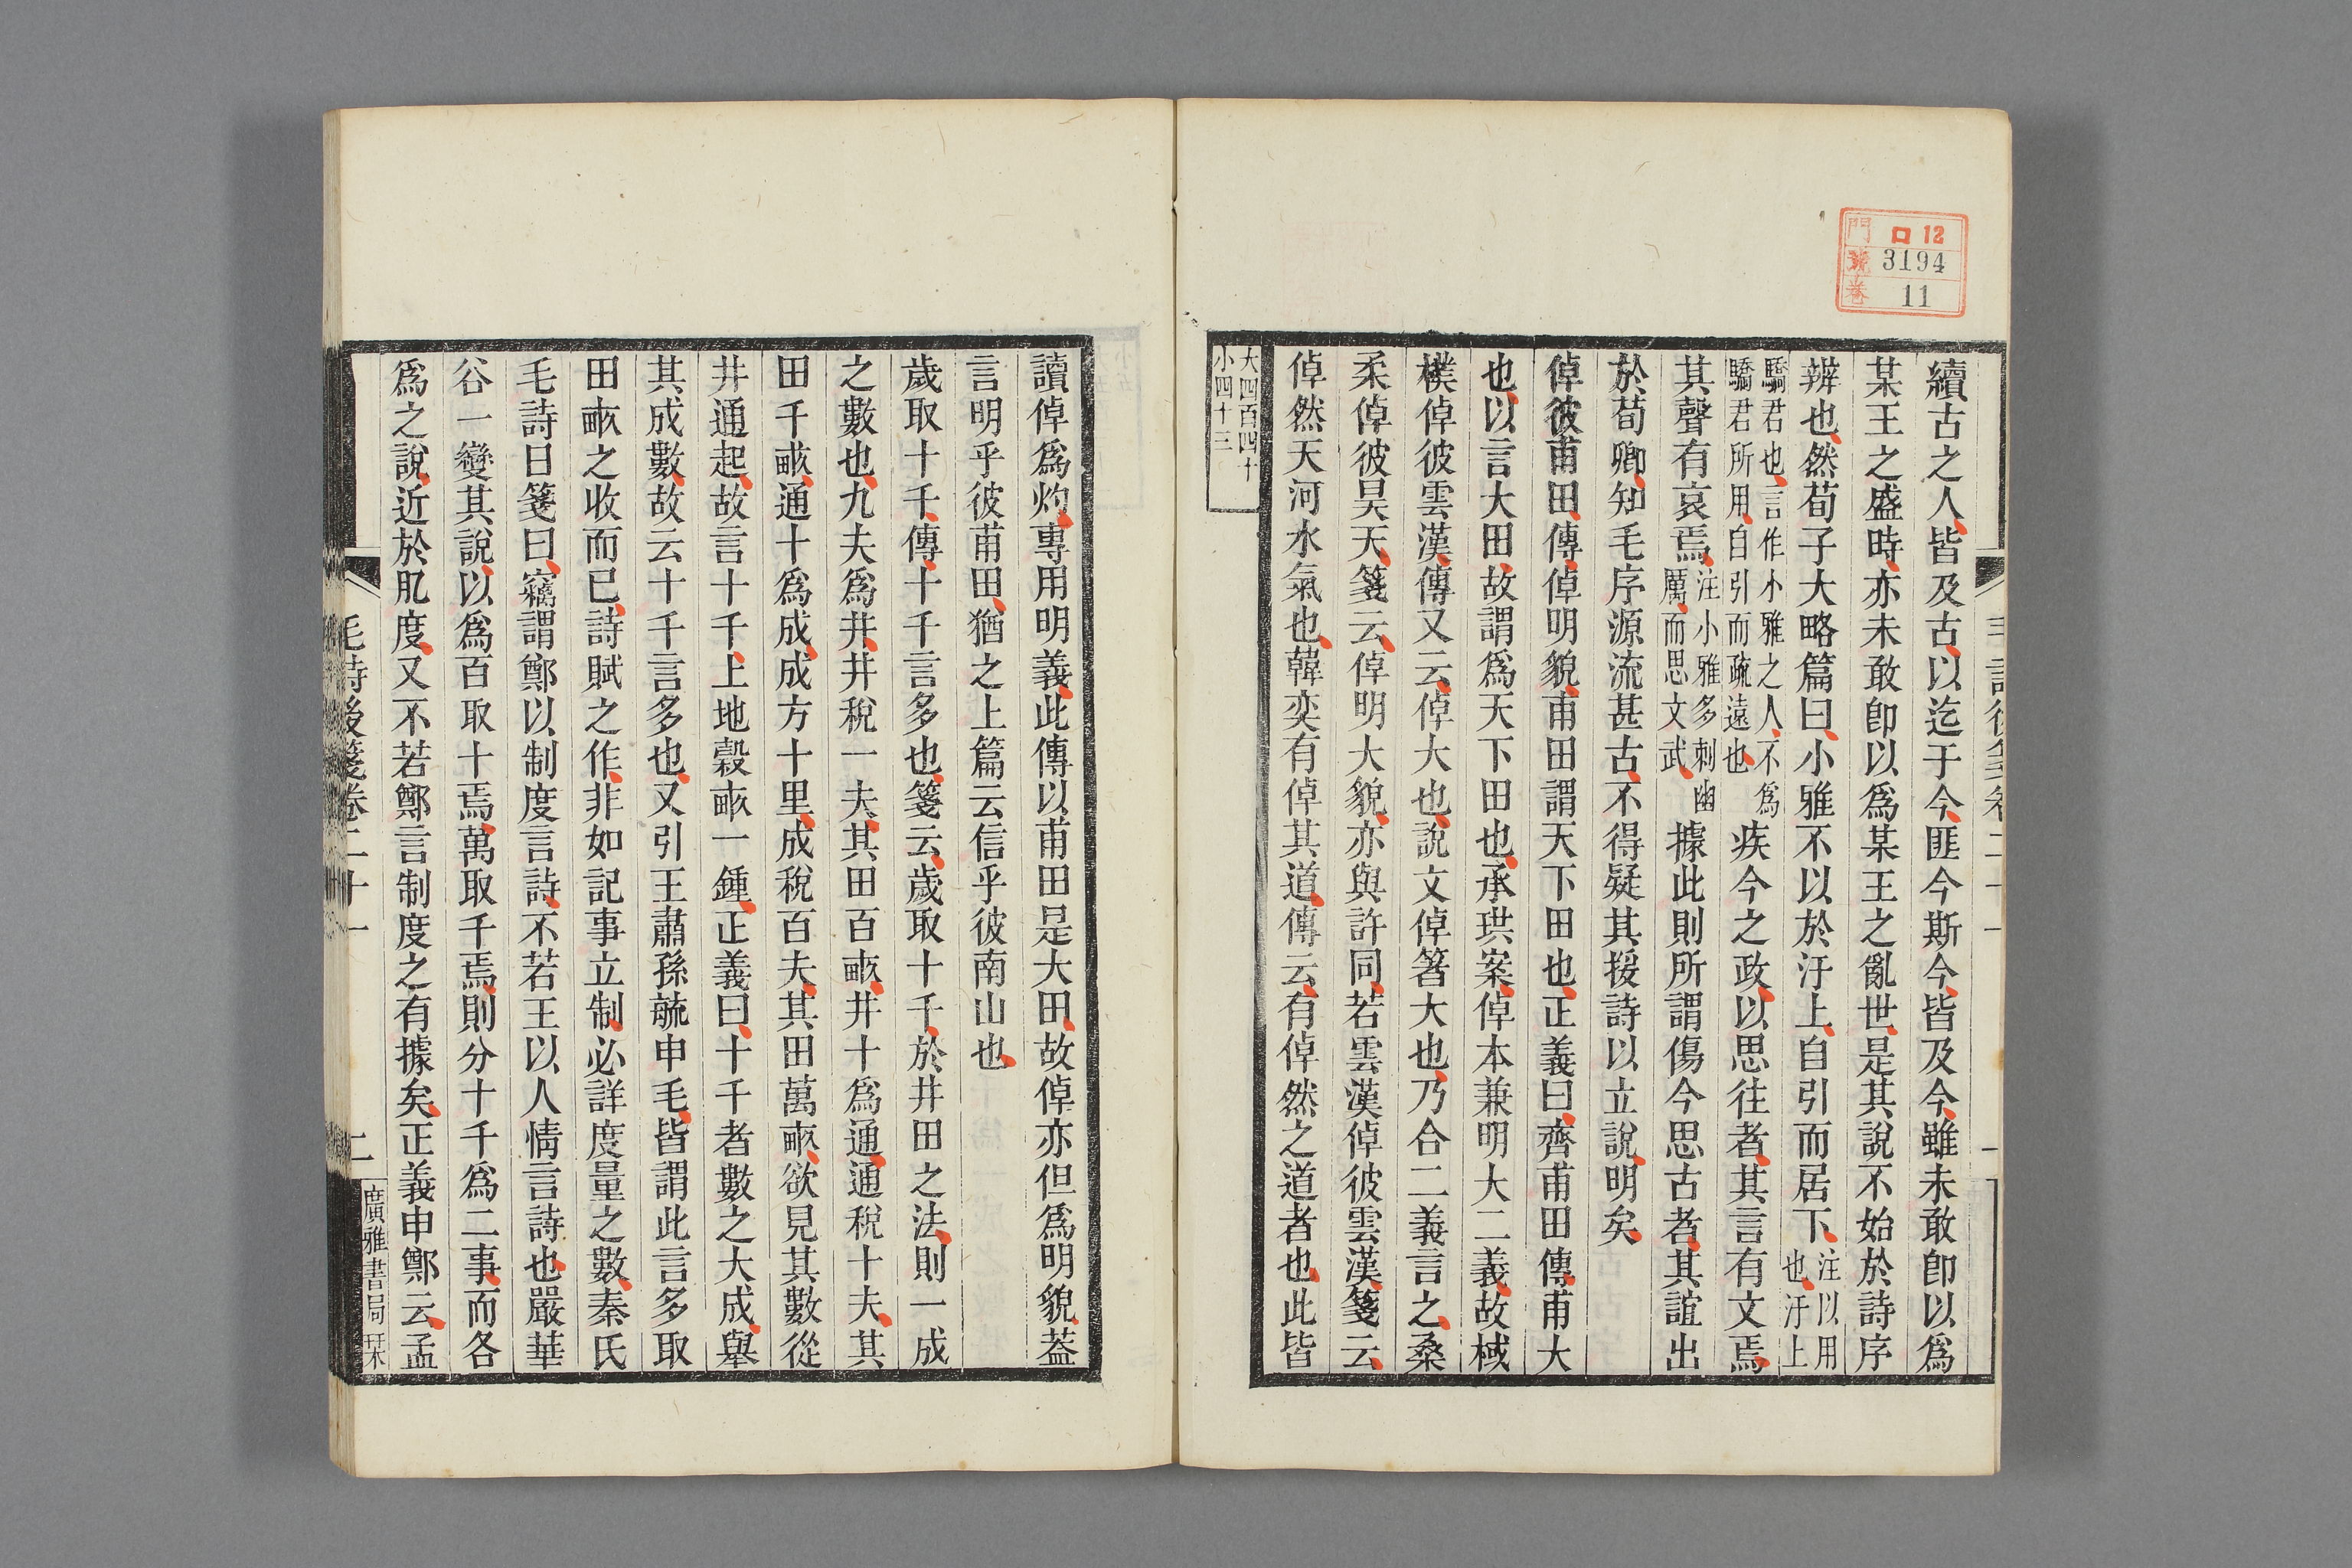 門 口 12
號 3194
卷 11
續古之人皆及古以迄于今匪今斯今皆及今雖未敢卽以爲
某王之盛時亦未敢卽以爲某王之亂世是其說不始於詩序
辨也然荀子大略篇曰小雅不以於汙上自引而居下注以用也汙上
驕君也言作小雅之人不爲驕君所用自引而疏遠也疾今之政以思往者其言有文焉
其聲有哀焉注小雅多刺幽厲而思文武據此則所謂傷今思古者其誼出
於荀卿知毛序源流甚古不得疑其援詩以立說明矣
倬彼甫田傳倬明貌甫田謂天下田也正義曰齊甫田傳甫大
也以言大田故謂爲天下田也承珙案倬本兼明大二義故棫
樸倬彼雲漢傳又云倬大也說文倬箸大也乃合二義言之桑
柔倬彼昊天箋云倬明大貌亦與許同若雲漢倬彼雲漢箋云
倬然天河水氣也韓奕有倬其道傳云有倬然之道者也此皆
大四百四十
小四十三
讀倬爲灼專用明義此傳以甫田是大田故倬亦但爲明貌葢
言明乎彼甫田猶之上篇云信乎彼南山也
歲取十千傳十千言多也箋云歲取十千於井田之法則一成
之數也九夫爲井井稅一夫其田百畝井十爲通通稅十夫其
田千畝通十爲成成方十里成稅百夫其田萬畝欲見其數從
井通起故言十千上地穀畝一鍾正義曰十千者數之大成舉
其成數故云十千言多也又引王肅孫毓申毛皆謂此言多取
田畝之收而已詩賦之作非如記事立制必詳度量之數秦氏
毛詩日箋曰竊謂鄭以制度言詩不若王以人情言詩也嚴華
谷一變其說以爲百取十焉萬取千焉則分十千爲二事而各
爲之說近於肊度又不若鄭言制度之有據矣正義申鄭云孟
毛詩後箋卷二十一
二
廣雅書局栞